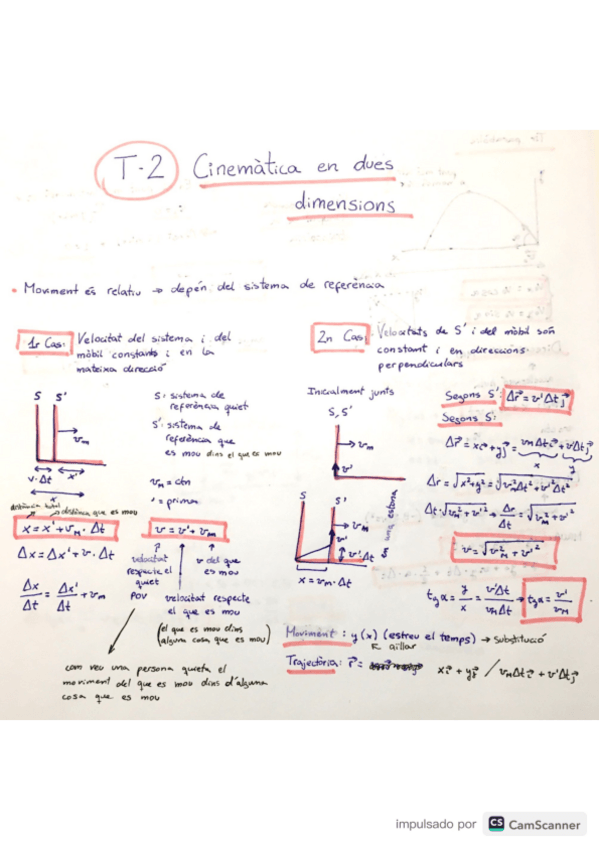 T-2 Cinemàtica en dues
dimensions
• Moviment és relatiu → depén del sistema de referència
1r Cas: Velocitat del sistema i del
mòbil constants i en la
mateixa direcció
S S'
v_m
v·Δt x'
x
S: sistema de
referència quiet
S': sistema de
referència que
es mou dins el que es mou
v_m = ctn
' = prima
distància total distància que es mou
x = x' + v_M · Δt
v = v' + v_m
Δx = Δx' + v · Δt
Δx/Δt = Δx'/Δt + v_m
velocitat
respecte el
quiet
POV
v del que
es mou
velocitat respecte
el que es mou
(el que es mou dins
alguna cosa que es mou)
com veu una persona quieta el
moviment del que es mou dins d'alguna
cosa que es mou
2n Cas: Velocitats de S' i del mòbil són
constant i en direccions
perpendiculars
Inicialment junts
S, S'
v_m
v'
S S'
v_M
v'
v'Δt
una estona
x = v_m · Δt
Segons S': Δr⃗ = v'Δt j⃗
Segons S:
Δr⃗ = xi⃗ + yj⃗ = v_mΔt i⃗ + v'Δt j⃗
x y
Δr = √x²+y² = √v_m²Δt² + v'²Δt²
Δt · √v_m² + v'² → Δr/Δt = √v_m² + v'²
v = √v_m² + v'²
tg α = y/x = v'Δt/v_mΔt → tg α = v'/v_M
Moviment: y(x) (estreu el temps) → Substitució
aïllar
Trajectòria: r⃗ = xi⃗ + yj⃗ / v_mΔt i⃗ + v'Δt j⃗
impulsado por CS CamScanner